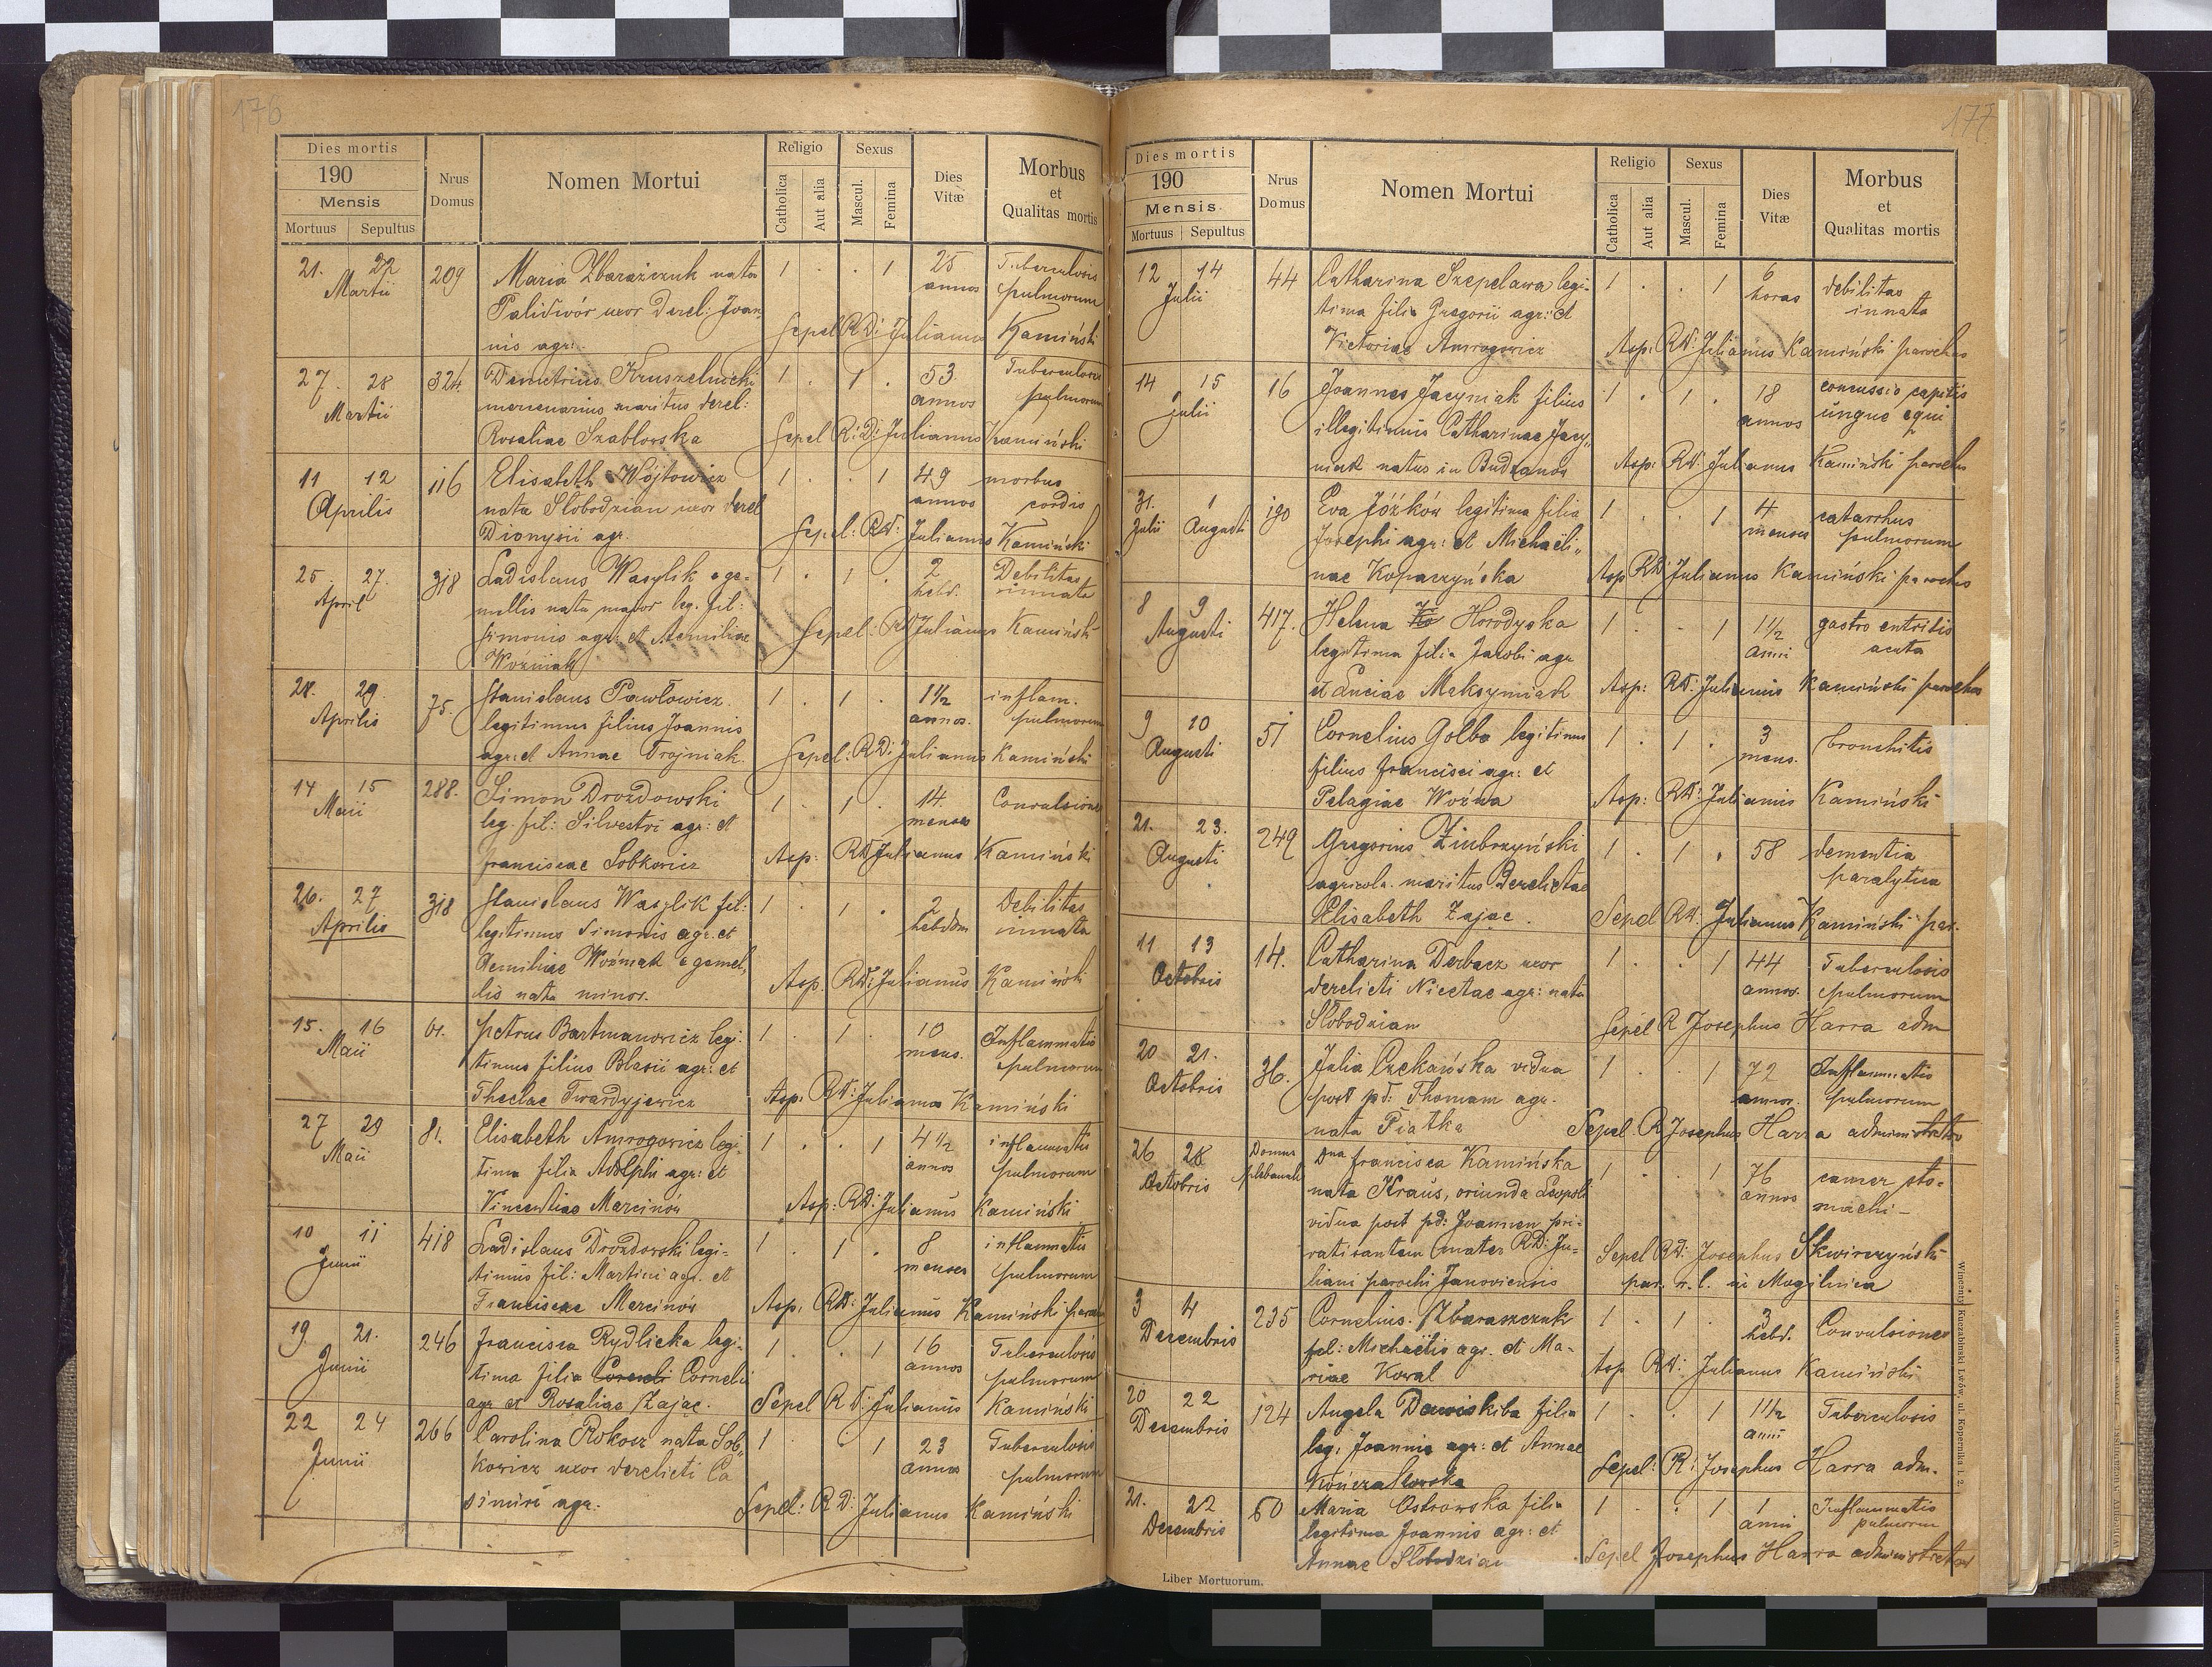 176
Dies mortis
190
Mensis
Mortuus Sepultus
Nrus Domus
Nomen Mortui
Religio
Catholica
Aut alia
Sexus
Mascul.
Femina
Dies Vitæ
Morbus et Qualitas mortis
21. 22 209 Maria Zbarażczuk nata 1 . . 1 25 Tuberculosis
Martii Palidwór uxor derel: Joan annos pulmorum
nis agr: Sepel RD: Julianus Kamiński
27. 28 324 Demetrius Kruszelnicki 1 . 1 . 53 Tuberculosis
Martii mercenarius maritus derel: annos pulmorum
Rosaliae Szablowska Sepel R: D: Julianus Kamiński
11 12 116 Elisabeth Wójtowicz 1 . . 1 49 morbus
Aprilis nata Słobodzian uxor derel annos cordis
Dionysii agr. Sepel: Rd: Julianus Kamiński
25 27. 318 Ladislaus Wasylik e ge- 1 . 1 . 2 Debilitas
April mellis natu major leg. fil: hebd. innata
Simonis agr: et Aemiliae Sepel: Rd Julianus Kamiński
Woźniak
28. 29. 75. Stanislaus Pawłowicz. 1 . 1 . 1 1/2 inflam.
Aprilis legitimus filius Joannis annos. pulmorum
agr: et Annae Trojniak. Sepel: RD: Julianus Kamiński
14 15 288. Simon Drozdowski 1 . 1 . 14. Convulsiones
Maii leg. fil: Silvestri agr: et menses
Franciscae Sobkowicz Asp: Rd Julianus Kamiński
26. 27 318 Stanislaus Wasylik fil: 1 . 1 . 2 Debilitas
Aprilis legitimus Simonis agr. et hebdom innata
Aemiliae Woźniak e gemel, Asp. Rd: Julianus Kamiński
lis natu minor.
15. 16 61. Petrus Bartmanowicz legi- 1 . 1 . 10 Inflammatio
Maii timus filius Blasii agr: et mens. pulmorum
Theclae Twardyjewicz Asp: Rd: Julianus Kamiński
27 29 81. Elisabeth Amrogowicz legi- 1 . . 1 4 1/2 inflammatio
Maii tima filia Adolphi agr: et annos pulmorum
Vincentiae Marcinów Asp: RD: Julianus Kamiński
10 11 418 Ladislaus Drozdowski legi- 1 . 1 . 8 inflammatio
Junii timus fil: Martini agr. et menses pulmorum
Franciscae Marcinów Asp. Rd: Julianus Kamiński paroch
19. 21. 246 Francisca Rydlicka legi- 1 . . 1 16 Tuberculosis
Junii tima filia Corneli Cornelii annos pulmorum
agr et Rosaliae Zając. Sepel R D: Julianus Kamiński
22 24 266 Carolina Rokosz nata Sob, 1 . . 1 23 Tuberculosis
Junii kowicz uxor derelicti Ca annos pulmorum
simiri agr. Sepel: R D: Julianus Kamiński
177
Dies mortis
190
Mensis
Mortuus Sepultus
Nrus Domus
Nomen Mortui
Religio
Catholica
Aut alia
Sexus
Mascul.
Femina
Dies Vitæ
Morbus et Qualitas mortis
12 14 44 Catharina Szepelawa legi- 1 . . 1 6 debilitas
Julii tima filia Gregorii agr: et horas innata
Victoriae Amrogowicz Asp: Rd: Julianus Kamiński parochus
14 15 16 Joannes Jacyniak filius 1 . 1 . 18 concussio capitis
Julii illegitimus Catharinae Jacy, annos ungue equi
niak natus in Budzanów Asp: Rd: Julianus Kamiński parochus
31. 1 190 Eva Jóżków legitima filia 1 . . 1 4 catarrhus
Julii Augusti Josephi agr: et Michaëli, menses pulmorum
nae Kopaczyńska Asp Rd: Julianus Kamiński parochus
8 9 417. Helena Ho Horodyska 1 . . 1 1 1/2 gastro entritis
Augusti legitima filia Jacobi agr anni acuta
et Luciae Maksymiak Asp: Rd: Julianus Kamiński parochus
9 10 51 Cornelius Golba legitimus 1 . 1 . 3 bronchitis
Augusti filius Francisci agr: et mens.
Pelagiae Woźna Asp: Rd: Julianus Kamiński
21. 23. 249 Gregorius Zimbrzyński 1 . 1 . 58 dementia
Augusti agricola. maritus derelictae paralytica
Elisabeth Zając. Sepel Rd: Julianus Kamiński par.
11 13 14. Catharina Derbacz uxor 1 . . 1 44 Tuberculosis
Octobris derelicti Nicetae agr: nata annos. pulmorum
Słobodzian Sepel R Josephus Harra adm
20 21. 36. Julia Czekańska vidua 1 . . 1 72 Inflammatio
Octobris post pd: Thomam agr. annos. pulmorum
nata Piatka Sepel. R Josephus Harra administrator
26 28 Domus Dna Francisca Kamińska 1 . . 1 76 cancer sto-
Octobris plebanalis nata Kraus, oriunda Leopoli annos machi-
vidua post pd: Joannem pri-
vatisantem (mater RD: Ju- Sepel RD: Josephus Skwirczyński
liani parochi Janoviensis par. r. l. in Mogilnica
3 4 235 Cornelius. Zbaraszczuk 1 . 1 . 3 Convulsiones
Decembris fil: Michaëlis agr. et Ma- hebd.
riae Kowal Asp Rd: Julianus Kamiński
20 22 124 Angela Dawiskiba filia 1 . . 1 1 1/2 Tuberculosis
Decembris leg: Joannis agr: et Annae anni
Kończakowska Sepel: R: Josephus Harra adm.
21. 22 60 Maria Ostrowska filia 1 . . 1 1 Inflammatio
Decembris legitima Joannis agr: et anni pulmorum
Annae Słobodzian Sepel Josephus Harra administrator
Liber Mortuorum.
Wincenty Kuczabiński Lwów, ul. Kopernika l. 2.